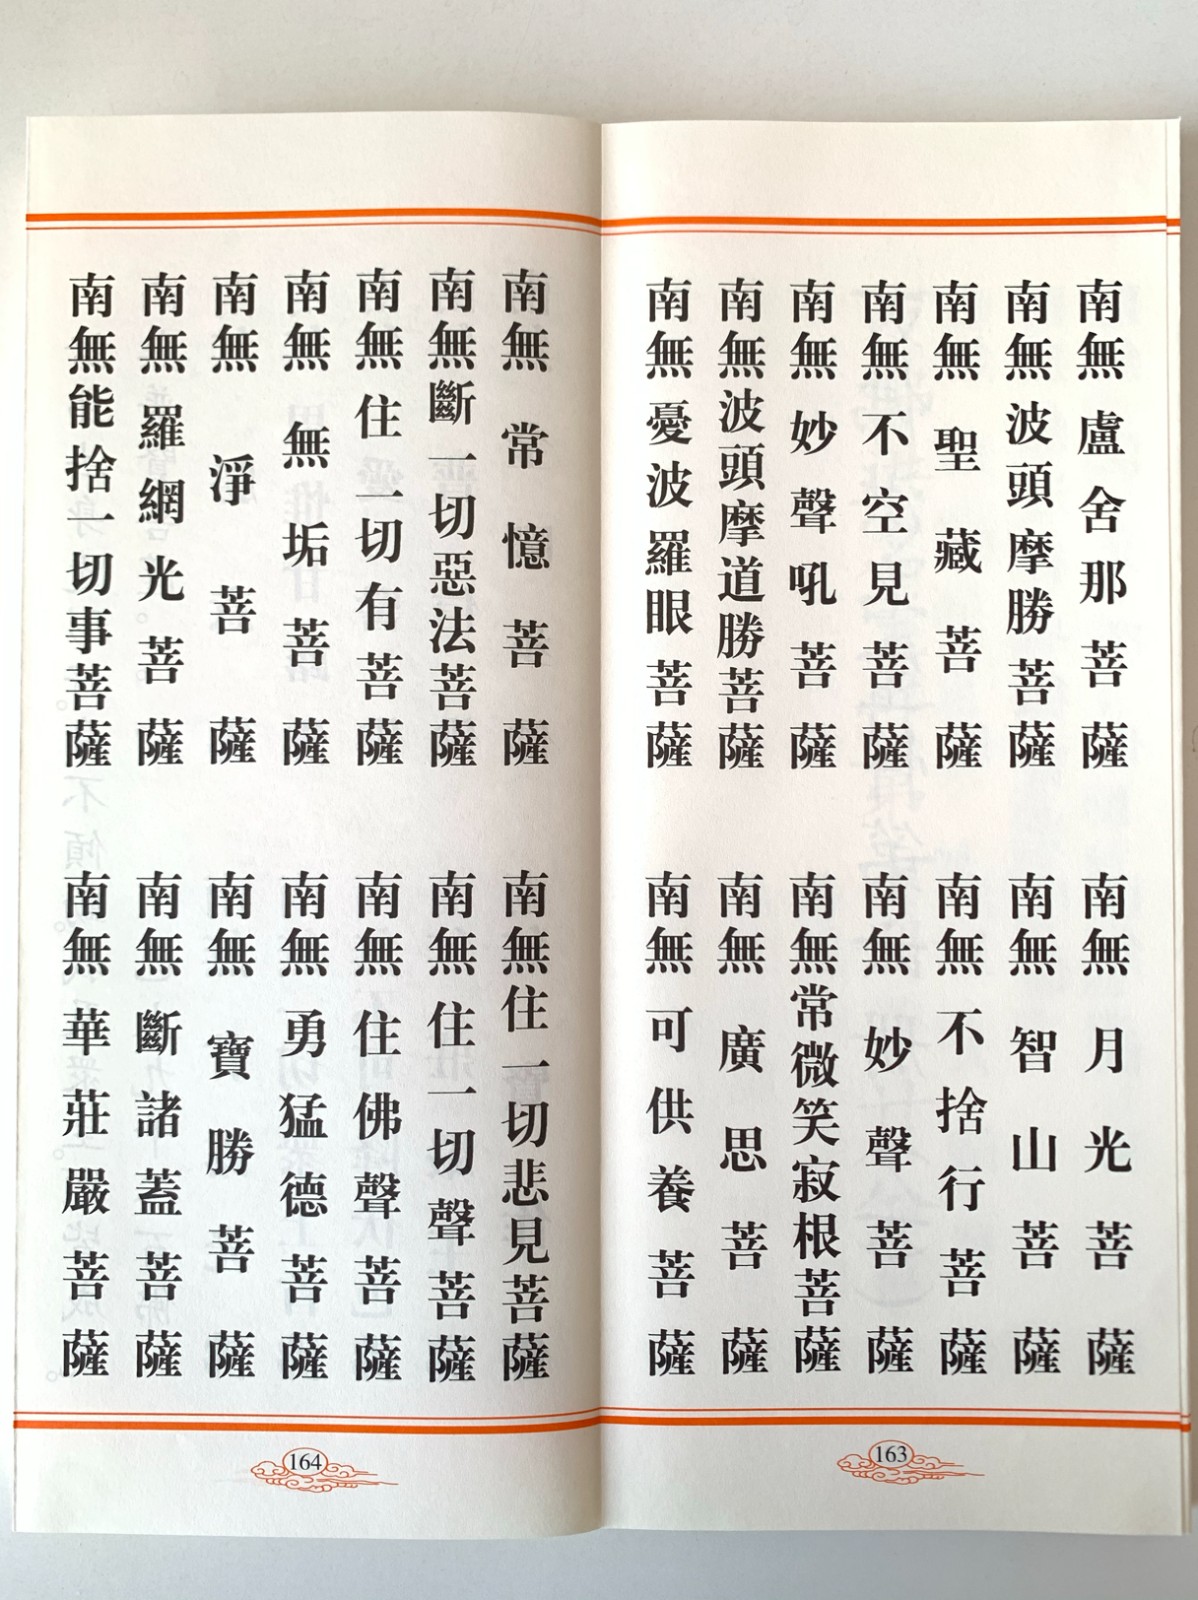 南無盧舍那菩薩
南無月光菩薩
南無波頭摩勝菩薩
南無智山菩薩
南無聖藏菩薩
南無不捨行菩薩
南無不空見菩薩
南無妙聲菩薩
南無妙聲吼菩薩
南無常微笑寂根菩薩
南無波頭摩道勝菩薩
南無廣思菩薩
南無憂波羅眼菩薩
南無可供養菩薩
163
南無常憶菩薩
南無住一切悲見菩薩
南無斷一切惡法菩薩
南無住一切聲菩薩
南無住一切有菩薩
南無住佛聲菩薩
南無無垢菩薩
南無勇猛德菩薩
南無淨菩薩
南無寶勝菩薩
南無羅網光菩薩
南無斷諸蓋菩薩
南無能捨一切事菩薩
南無華莊嚴菩薩
164